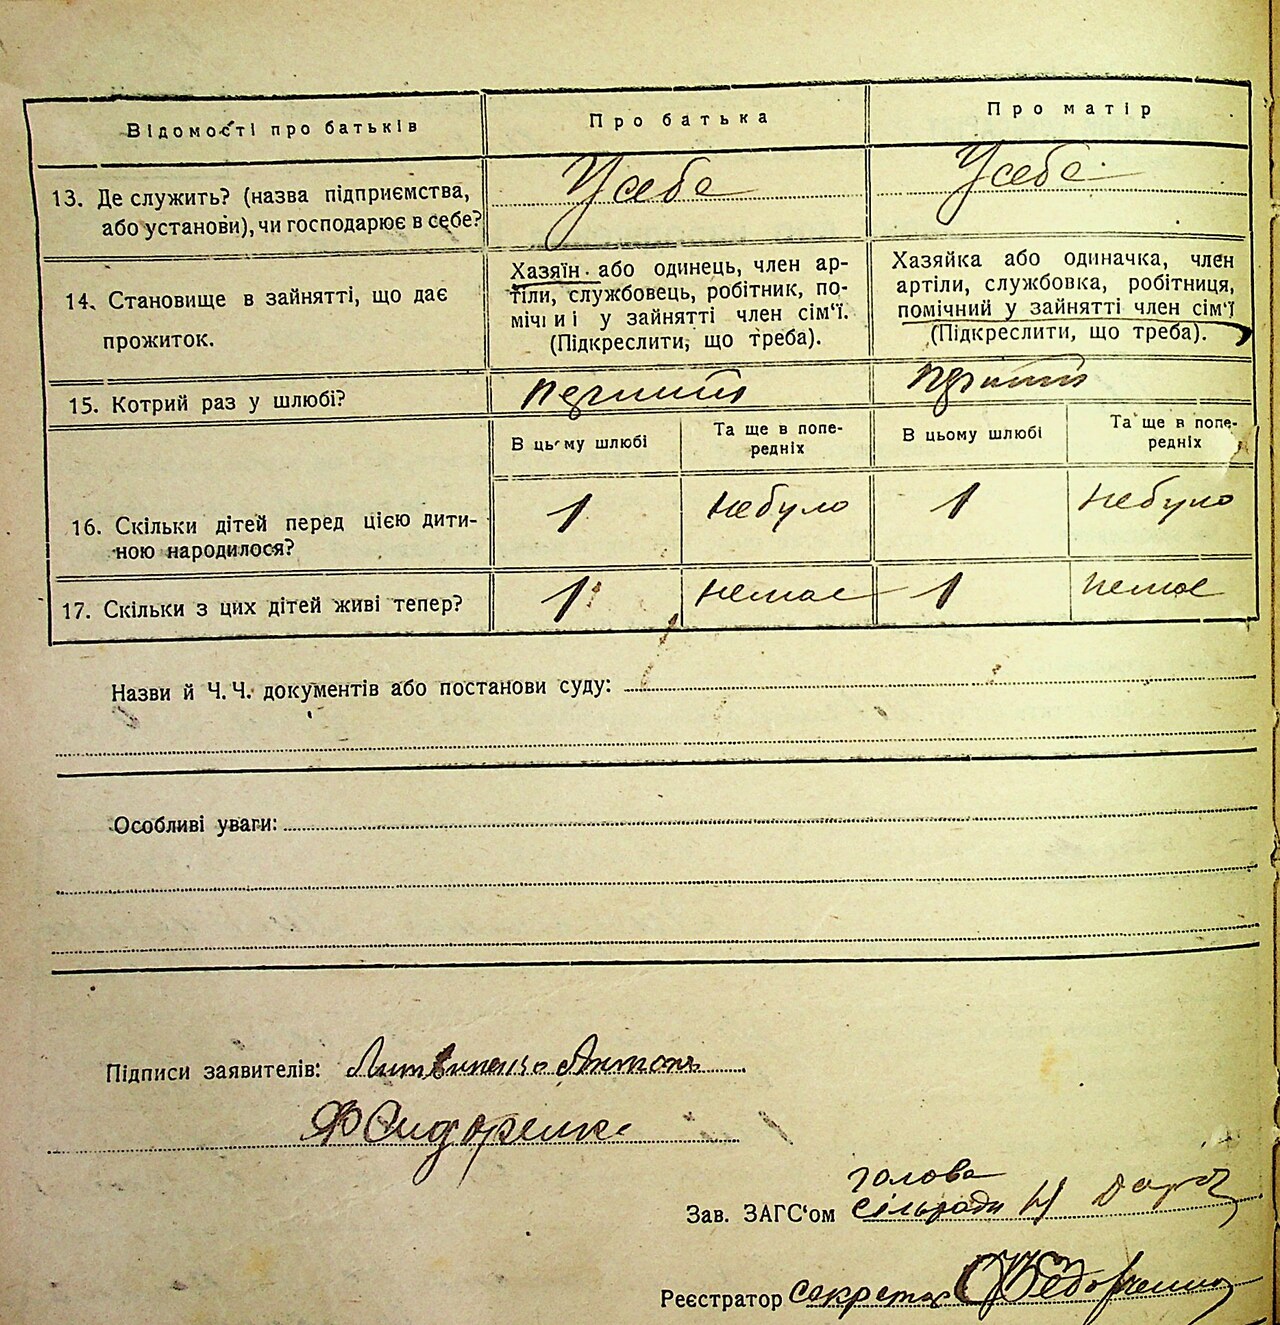 Відомості про батьків
Про батька
Про матір
13. Де служить? (назва підприємства,
або установи), чи господарює в себе?
Усебе
Усебе
14. Становище в зайнятті, що дає
прожиток.
Хазяїн або одинець, член ар-
тіли, службовець, робітник, по-
мічниі у зайнятті член сім'ї.
(Підкреслити, що треба).
Хазяйка або одиначка, член
артіли, службовка, робітниця,
помічний у зайнятті член сім'ї
(Підкреслити, що треба).
15. Котрий раз у шлюбі?
В цьому шлюбі
Та ще в попе-
редніх
В цьому шлюбі
Та ще в попе-
редніх
16. Скільки дітей перед цією дити-
ною народилося?
1
небуло
1
небуло
17. Скільки з цих дітей живі тепер?
1
немає
1
немає
Назви й Ч. Ч. документів або постанови суду:
Особливі уваги:
Підписи заявителів: Литвиненко Антон
Сидоренко
голова
Зав. ЗАГС'ом сільради
Реєстратор секретар Федорченко